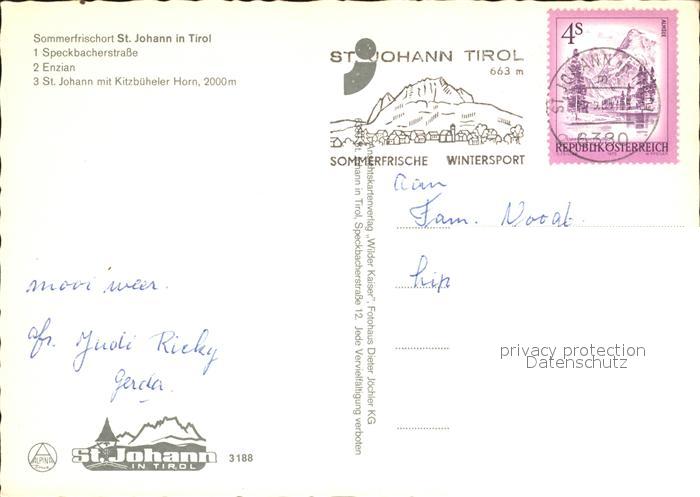 Sommerfrischort St. Johann in Tirol
1 Speckbacherstraße
2 Enzian
3 St. Johann mit Kitzbüheler Horn, 2000 m
ST. JOHANN TIROL
663 m
SOMMERFRISCHE WINTERSPORT
4s
ALMSEE
REPUBLIK ÖSTERREICH
ST. JOHANN
6380
Ansichtskartenverlag „Wilder Kaiser", Fotohaus Dieter Jöchler KG
6380 St. Johann in Tirol, Speckbacherstraße 12. Jede Vervielfältigung verboten
Aan
Fam.
mooi weer.
afz. Judi Ricky
Gerda.
privacy protection
Datenschutz
ALPINA
St. Johann
IN TIROL
3188